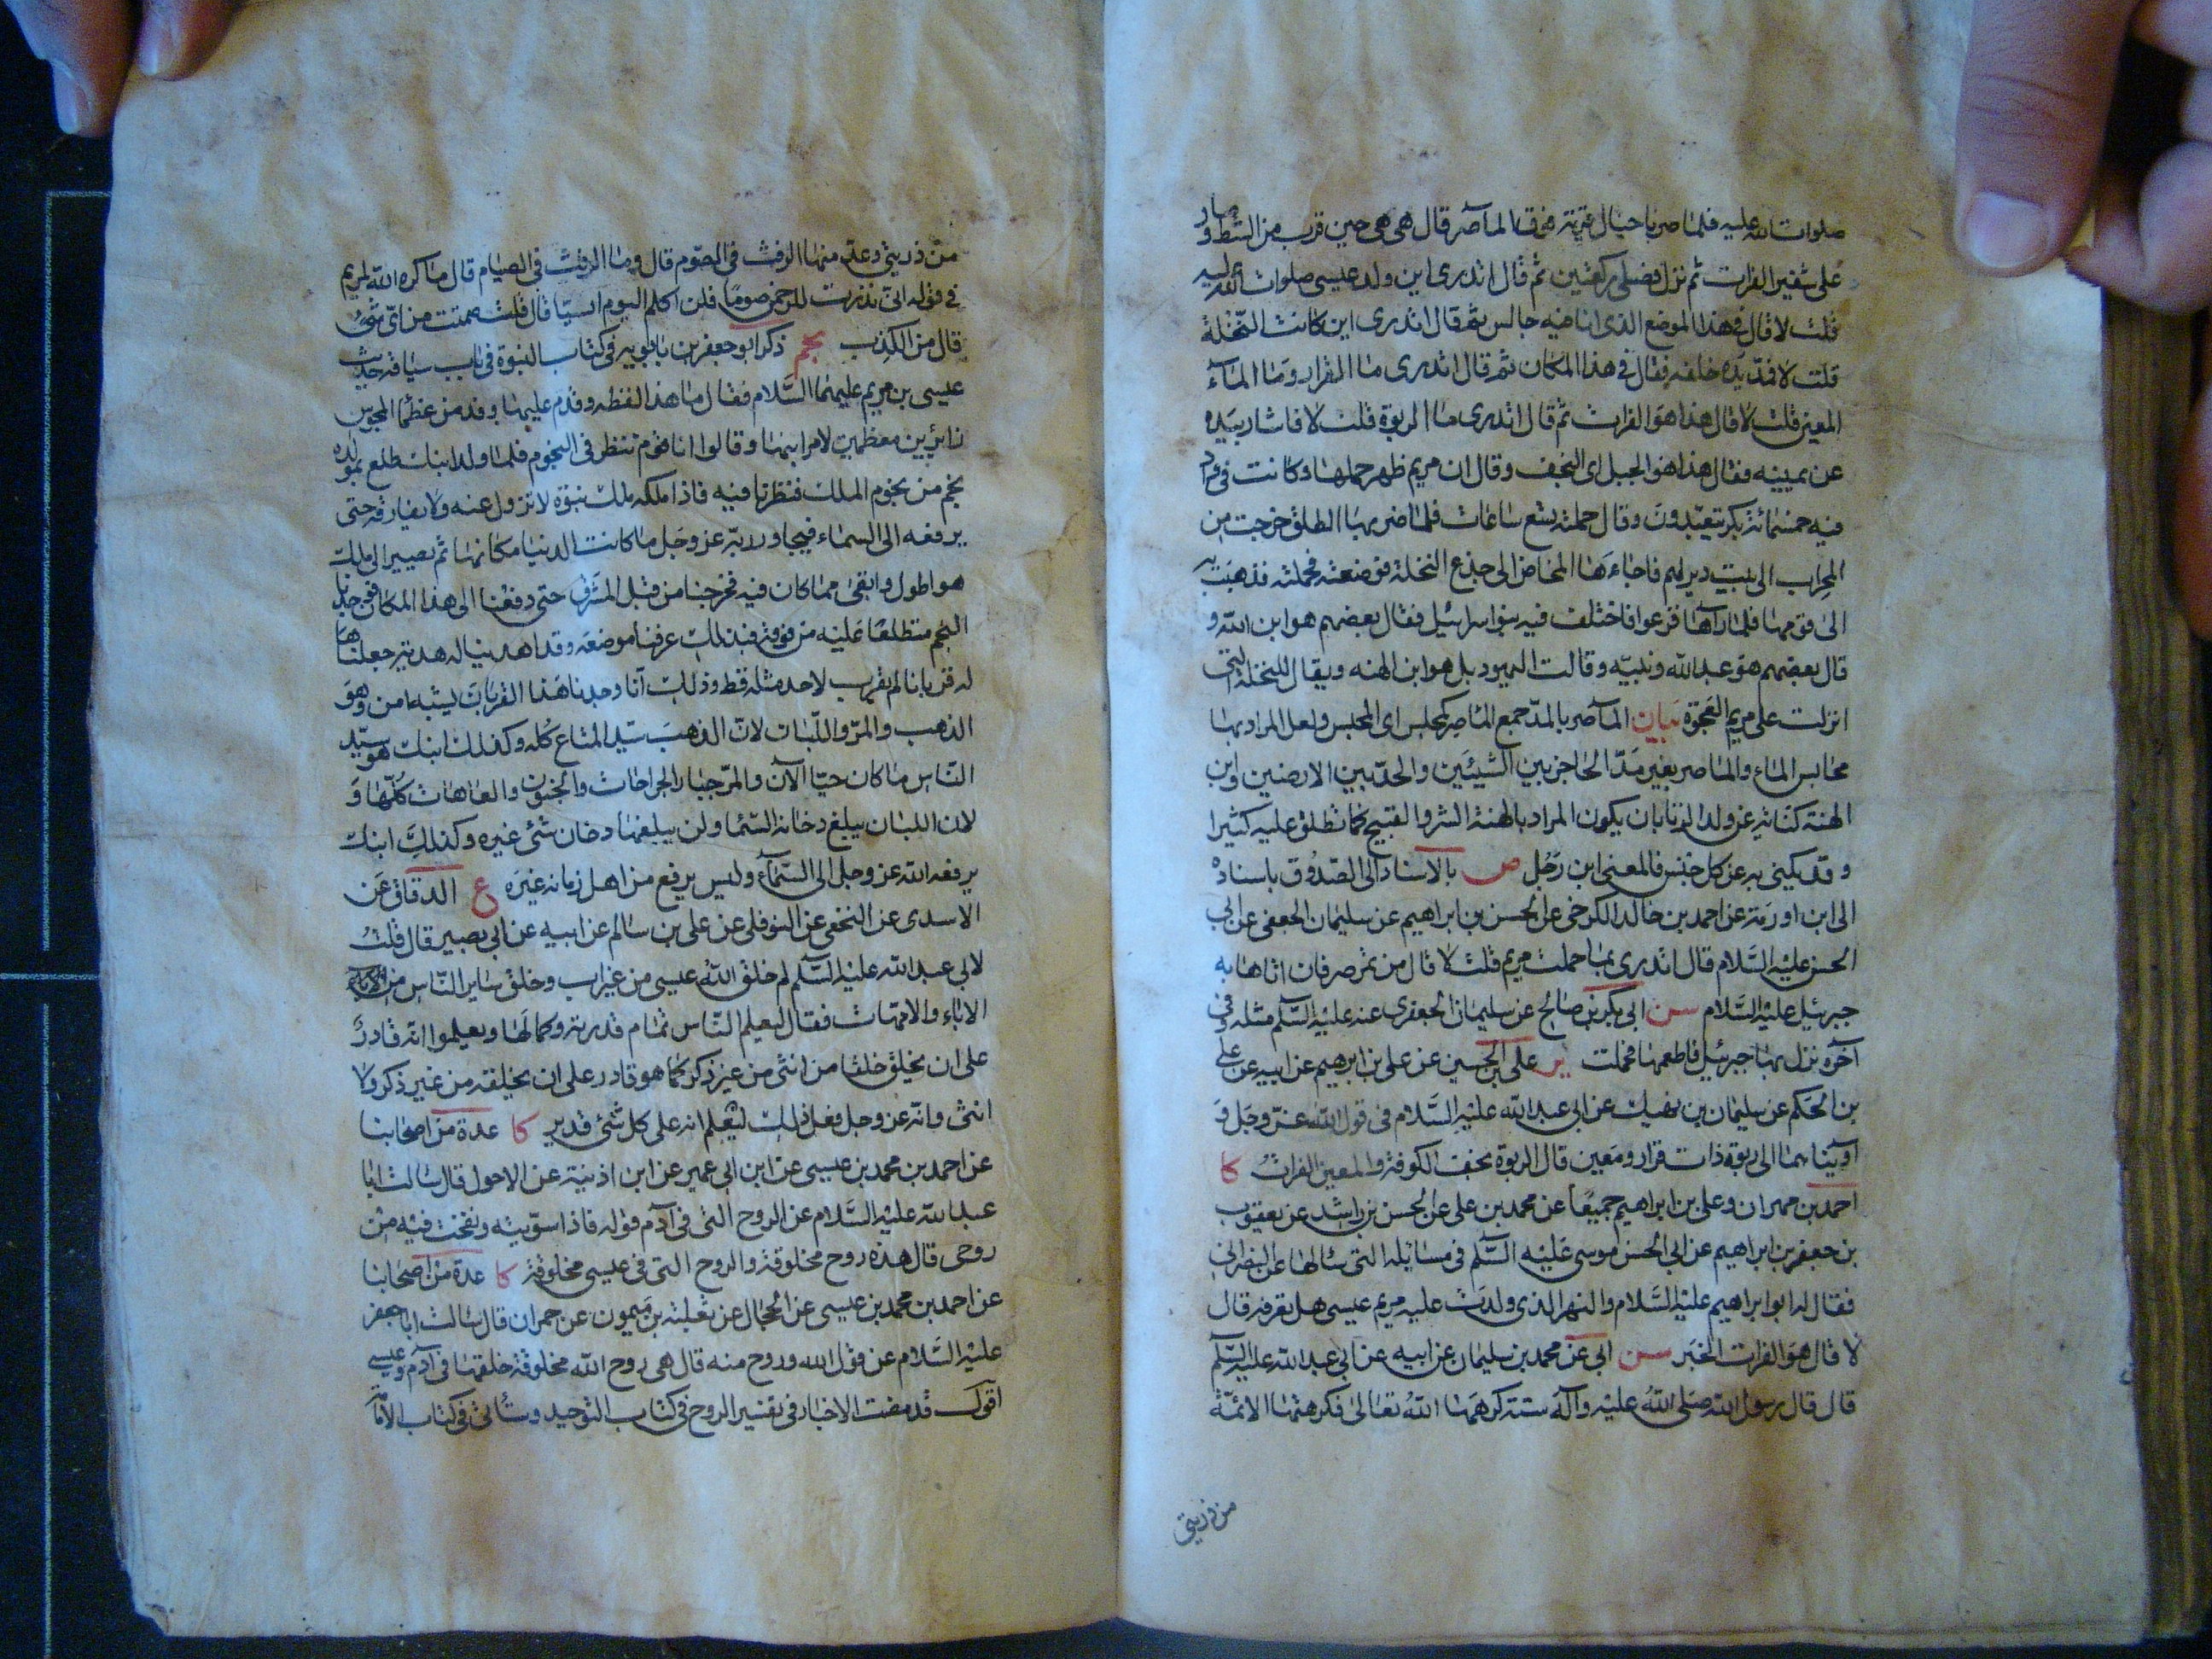 صلوات الله عليه فلما صرنا حيال قرية فوق المآصر قال هي هي حين قرب من الشط وصار
على شفير الفرات ثم نزل فصلى ركعتين ثم قال اتدري اين ولد عيسى صلوات الله عليه
قلت لا قال في هذا الموضع الذي انا فيه جالس ثم قال اتدري اين كانت النخلة
قلت لا فمد يده خلفه فقال في هذا المكان ثم قال اتدري ما القرار وما المآء
المعين قلت لا قال هذا هو الفرات ثم قال اتدري ما الربوة قلت لا فاشار بيده
عن يمينه فقال هذا هو الجبل اى النجف وقال ان مريم ظهر حملها وكانت في واد
فيه خمسمائة بكر يتعبدون وقال حملته تسع ساعات فلما ضربها الطلق خرجت من
المحراب الى بيت دير لهم فاجاءها المخاض الى جذع النخلة فوضعته فحملته فذهبت به
الى قومها فلما رآها فزعوا فاختلف فيه بنو اسرائيل فقال بعضهم هو ابن الله و
قال بعضهم هو عبد الله ونبيه وقالت اليهود بل هو ابن الهنه ويقال للنخلة التي
انزلت على مريم العجوة بيان المآصر بالمد جمع الماصر كمجلس اى المحبس ولعل المراد بها
محابس الماء والماصر بغير مد الحاجز بين الشيئين والحد بين الارضين وابن
الهنة كناية عن ولد الزنا بان يكون المراد بالهنة الشر والقبيح كما تطلق عليه كثيرا
وقد يكنى به عن كل جنس فالمعنى ابن رجل ص بالاسناد الى الصدوق باسناده
الى ابن اورمة عن احمد بن خالد الكرخى عن الحسن بن ابراهيم عن سليمان الجعفي عن ابي
الحسن عليه السلام قال اتدري بما حملت مريم قلت لا قال من تمر صرفان اتاها به
جبرئيل عليه السلام سن ابي بكر بن صالح عن سليمان الجعفري عنه عليه السلم مثله وفي
آخره نزل بها جبرئيل فاطعمها فحملت ير على بن الحسين عن على بن ابرهيم عن ابيه عن على
بن الحكم عن سليمان بن نهيك عن ابي عبد الله عليه السلام في قول الله عز وجل و
آويناهما الى ربوة ذات قرار ومعين قال الربوة نجف الكوفة والمعين الفرات كا
احمد بن مهران وعلى بن ابراهيم جميعا عن محمد بن على عن الحسن بن راشد عن يعقوب
بن جعفر بن ابراهيم عن ابي الحسن موسى عليه السلم في مسائله التي سئالها عن النصراني
فقال له ابو ابراهيم عليه السلام والنهر الذي ولدت عليه مريم عيسى هل تعرفه قال
لا قال هو الفرات الخبر سن ابي عن محمد بن سليمان عن ابيه عن ابي عبد الله عليه السلم
قال قال رسول الله صلى الله عليه وآله ستة كرهها الله تعالى فكرهتها الائمة
من ذريتي
من ذريتي وعد منها الرفث في الصوم قال وما الرفث في الصيام قال ما كره الله لمريم
في قوله اني نذرت للرحمن صوما فلن اكلم اليوم انسيا قال قلت صمتت من اى شئ
قال من الكذب نجم ذكر ابو جعفر بن بابويه في كتاب النبوة في باب سياقة حديث
عيسى بن مريم عليهما السلام فقال ما هذا لفظه وقدم عليها وفد من عظماء المجوس
زائرين معظمين لامر ابنها وقالوا انا قوم ننظر في النجوم فلما ولد ابنك طلع بمولده
نجم من نجوم الملك فنظرنا فيه فاذا ملكه ملك نبوة لا تزول عنه ولا يفارقه حتى
يرفعه الى السماء فيجاور ربه عز وجل ما كانت الدنيا مكانها ثم يصير الى ملك
هو اطول وابقى مما كان فيه فخرجنا من قبل المشرق حتى دفعنا الى هذا المكان فوجدنا
النجم متطلعا عليه من فوقه فبذلك عرفنا موضعه وقد اهدينا له هدية جعلناها
له قربانا لم يقرب لاحد مثله قط وذلك انا وجدنا هذا القربان يشبه امره وهو
الذهب والمر واللبان لان الذهب سيد المتاع كله وكذلك ابنك هو سيد
الناس ما كان حيا الآن والمر جبار الجراحات والجنون والعاهات كلها و
لان اللبان يبلغ دخانه السماء ولن يبلغها دخان شئ غيره وكذلك ابنك
يرفعه الله عز وجل الى السمآء وليس يرفع من اهل زمانه غيره ع الدقاق عن
الاسدى عن النخعي عن النوفلي عن على بن سالم عن ابيه عن ابي بصير قال قلت
لابي عبد الله عليه السلم لم خلق الله عيسى من غير اب وخلق ساير الناس من
الاباء والامهات فقال ليعلم الناس تمام قدرته وكمالها ويعلموا انه قادر
على ان يخلق خلقا من انثى من غير ذكر كما هو قادر على ان يخلقه من غير ذكر ولا
انثى وانه عز وجل فعل ذلك ليعلم انه على كل شئ قدير كا عدة من اصحابنا
عن احمد بن محمد بن عيسى عن ابن ابي عمير عن ابن اذينة عن الاحول قال سالت ابا
عبد الله عليه السلام عن الروح التي في آدم قوله فاذا سويته ونفخت فيه من
روحي قال هذه روح مخلوقة والروح التي في عيسى مخلوقة كا عدة من اصحابنا
عن احمد بن محمد بن عيسى عن الحجال عن ثعلبة بن ميمون عن حمران قال سالت ابا جعفر
عليه السلام عن قول الله وروح منه قال هي روح الله مخلوقة خلقها في آدم وعيسى
اقول قد مضت الاخبار في تفسير الروح في كتاب التوحيد وستأتي في كتاب الامامة